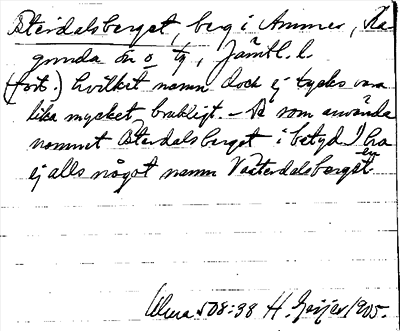 Österdalsberget, berg i Ammer, Ra
gunda sn o tg, Jämtl. l.
(forts.) hvilket namn dock ej tycks vara
lika mycket brukligt. – De som använda
namnet Österdalsberget i betyd. I ha
ej alls något namn Västerdalsberget
en
508:38 H. Geijer 1905.